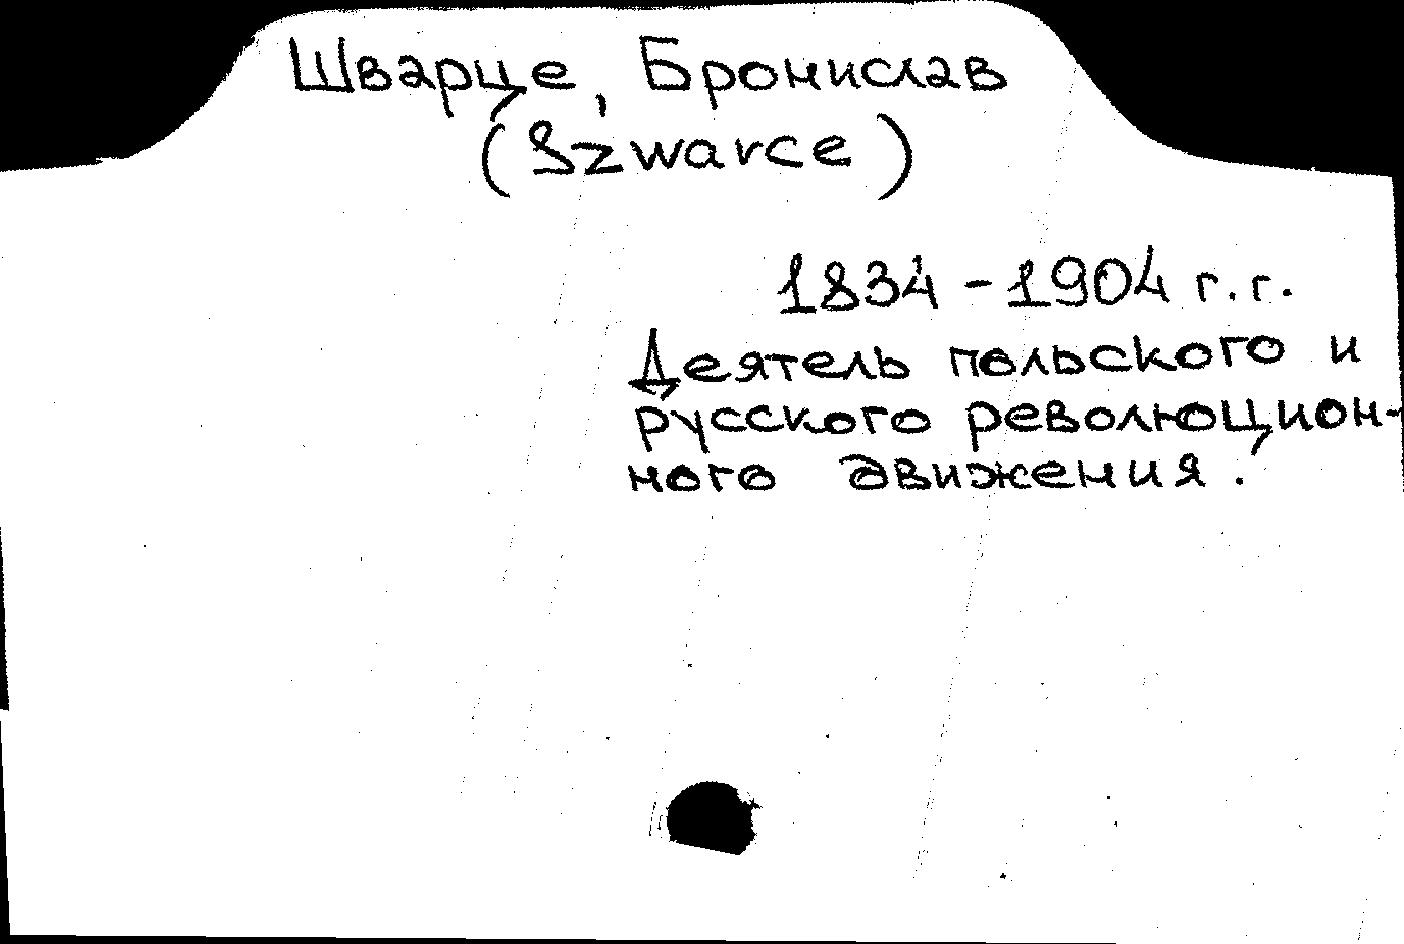 Шварце, Бронислав
(Szwarce)
1834-1904 г.г.
Деятель польского и
русского революцион-
ного движения.